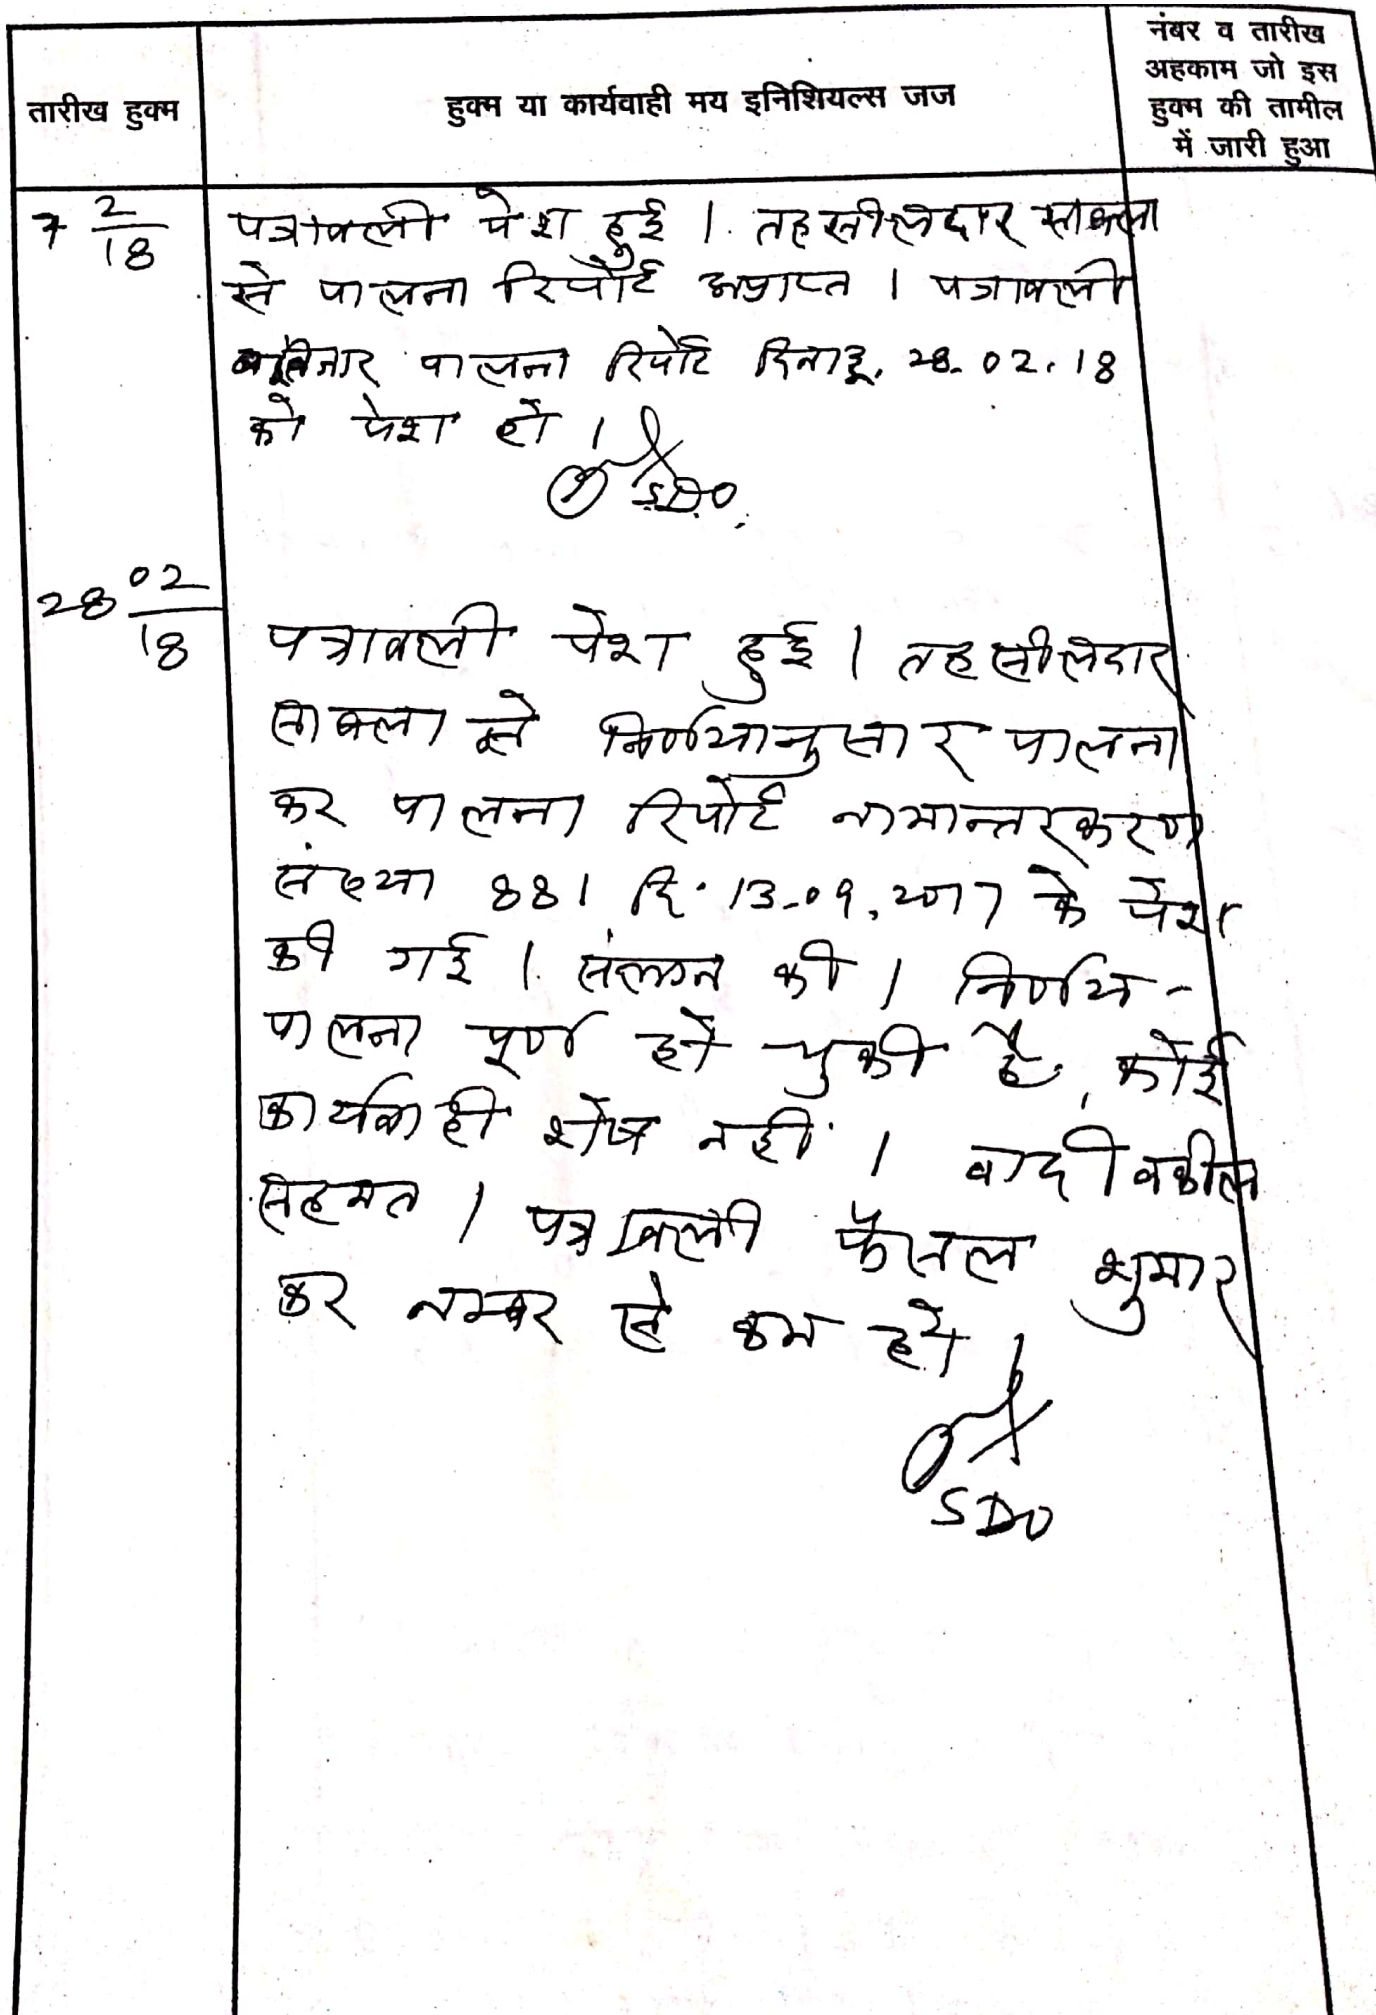 तारीख हुक्म
हुक्म या कार्यवाही मय इनिशियल्स जज
नंबर व तारीख
अहकाम जो इस
हुक्म की तामील
में जारी हुआ
7 2/18
पत्रावली पेश हुई । तहसीलदार
से पालना रिपोर्ट अप्राप्त । पत्रावली
पालना रिपोर्ट दिनांक 28.02.18
को पेश हो ।
SDO
28 02/18
पत्रावली पेश हुई । तहसीलदार
से निर्णयानुसार पालना
कर पालना रिपोर्ट नामान्तरकरण
संख्या 881 दि. 13-09.2017 के पेश
की गई । संलग्न की । निर्णय -
पालना पूर्ण हो चुकी है, कोई
कार्यवाही शेष नहीं । वादी वकील
सहमत । पत्रावली फैसल शुमार
कर नम्बर से कम हो ।
SDO